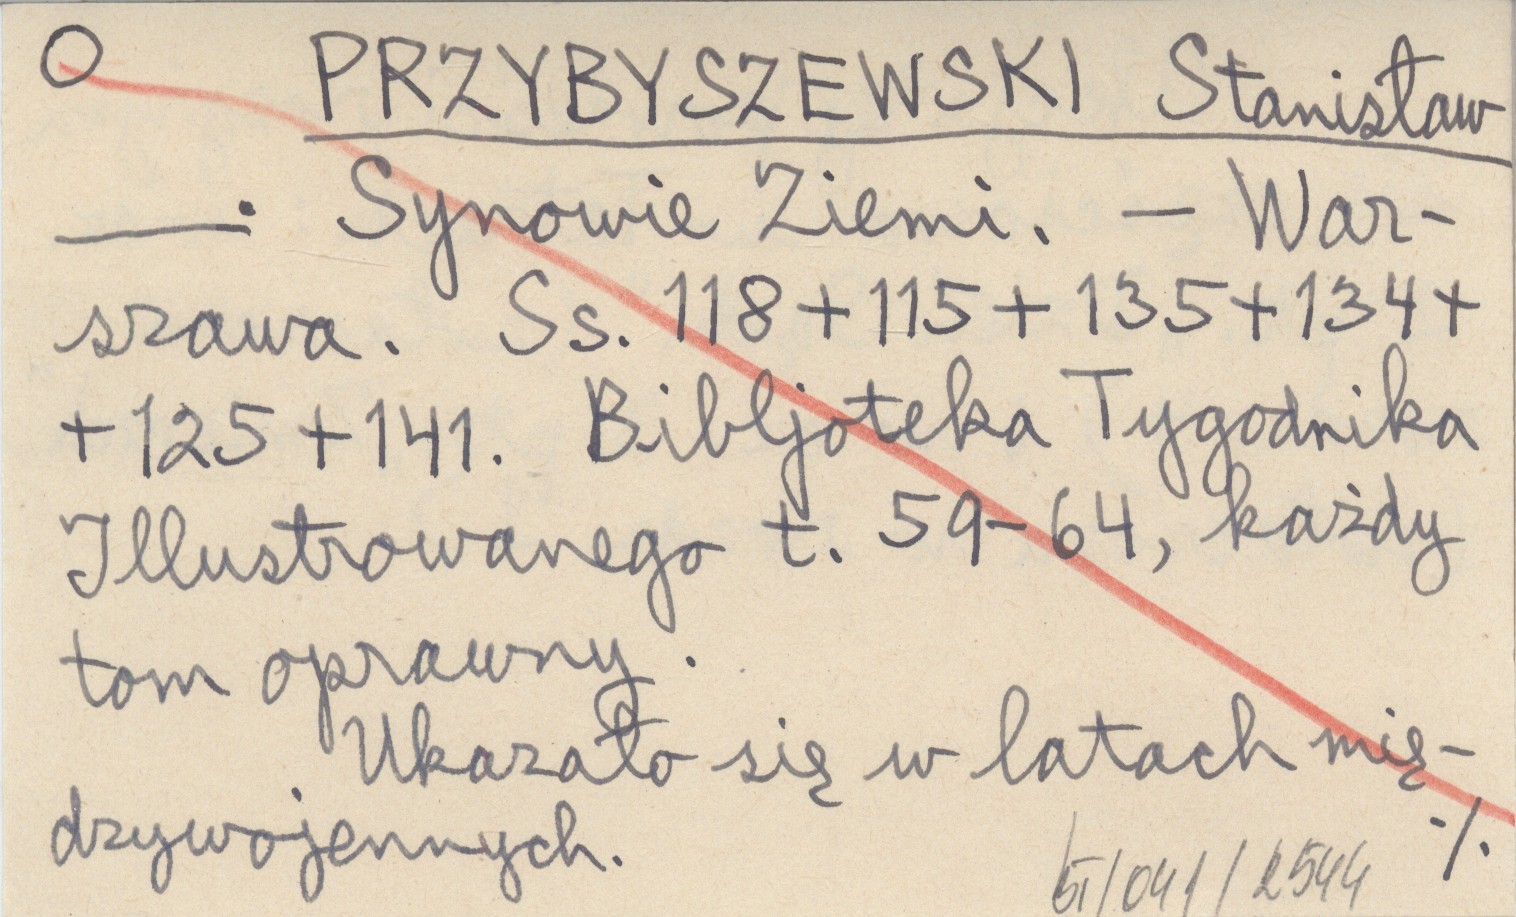 O PRZYBYSZEWSKI Stanisław
—. Synowie Ziemi. — War-
szawa. Ss. 118+115+135+134+
+125+141. Bibljoteka Tygodnika
Illustrowanego t. 59-64, każdy
tom oprawny.
Ukazało się w latach mię-
dzywojennych.
./.
/041/2544